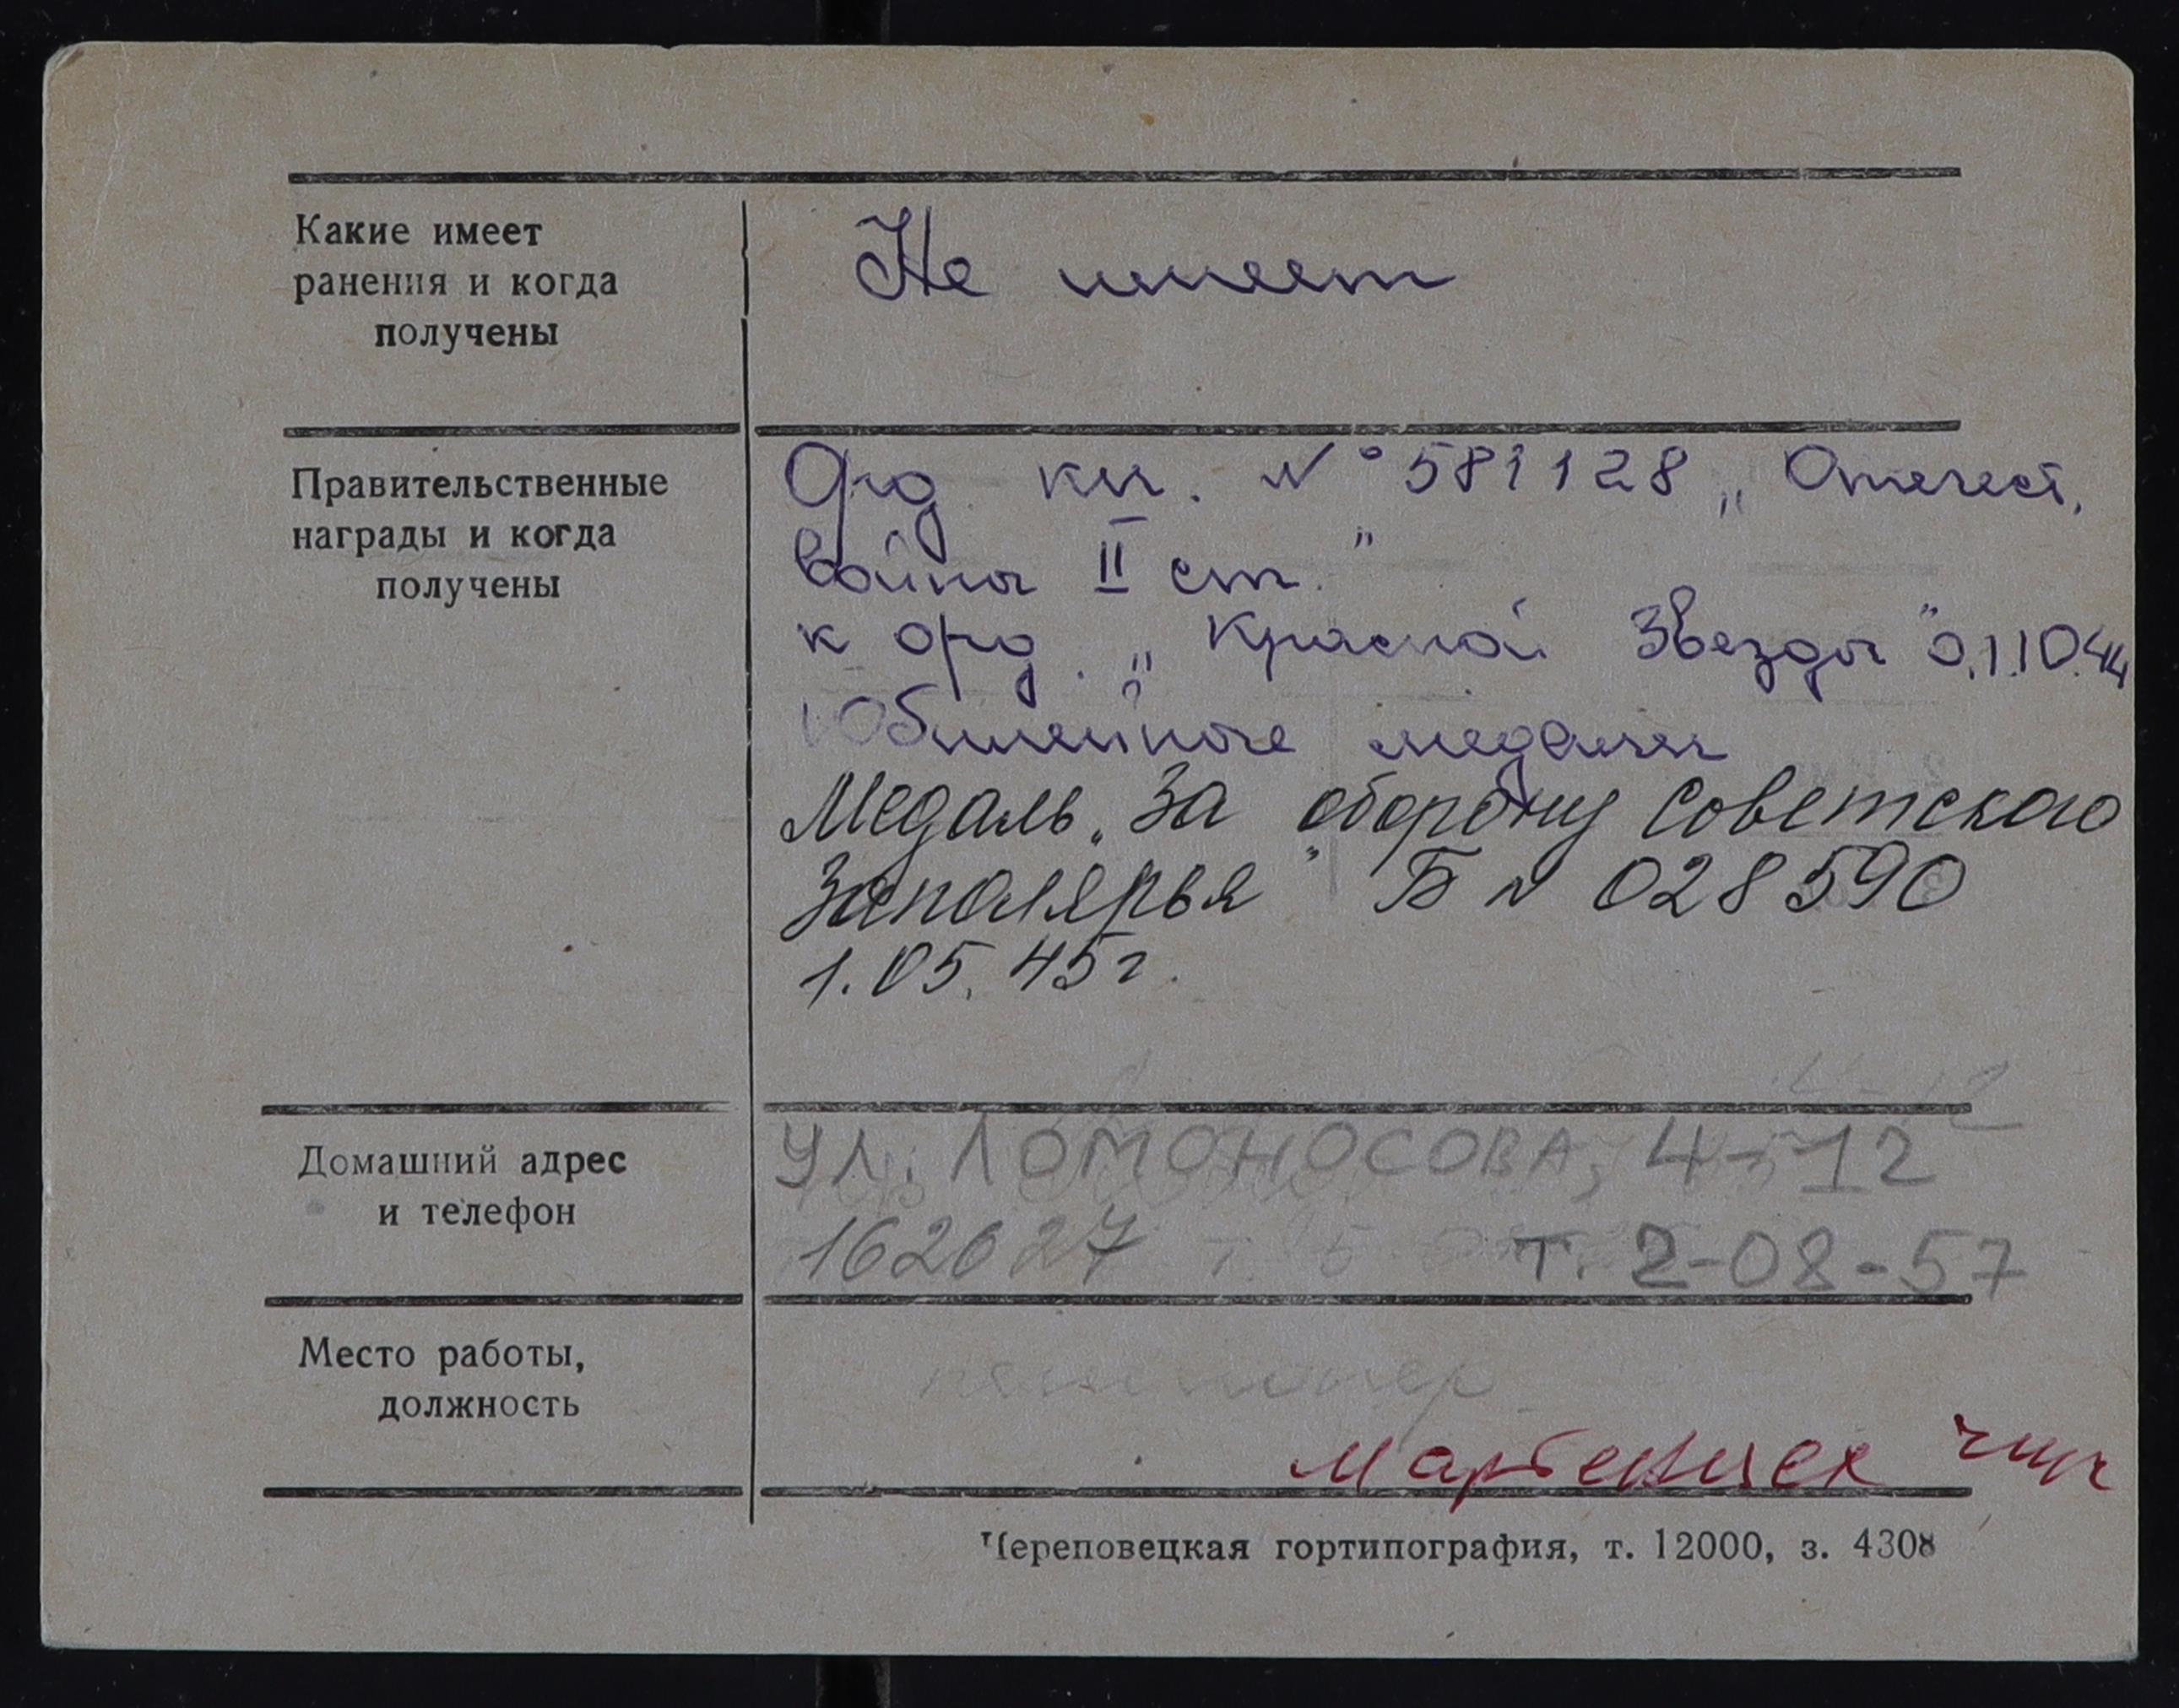 Какие имеет
ранения и когда
получены
Не имеет
Правительственные
награды и когда
получены
Орд. кн. N° 581128 „Отечест.
войны II ст."
к орд. „Красной Звезды"
Юбилейные медали
Медаль „За оборону Советского
Заполярья" Б N 028590
1.05.45г.
Домашний адрес
и телефон
ул. ЛОМОНОСОВА, 4-12
162627 т. 2-08-57
Место работы,
должность
пенсионер
Череповецкая гортипография, т. 12000, з. 4308